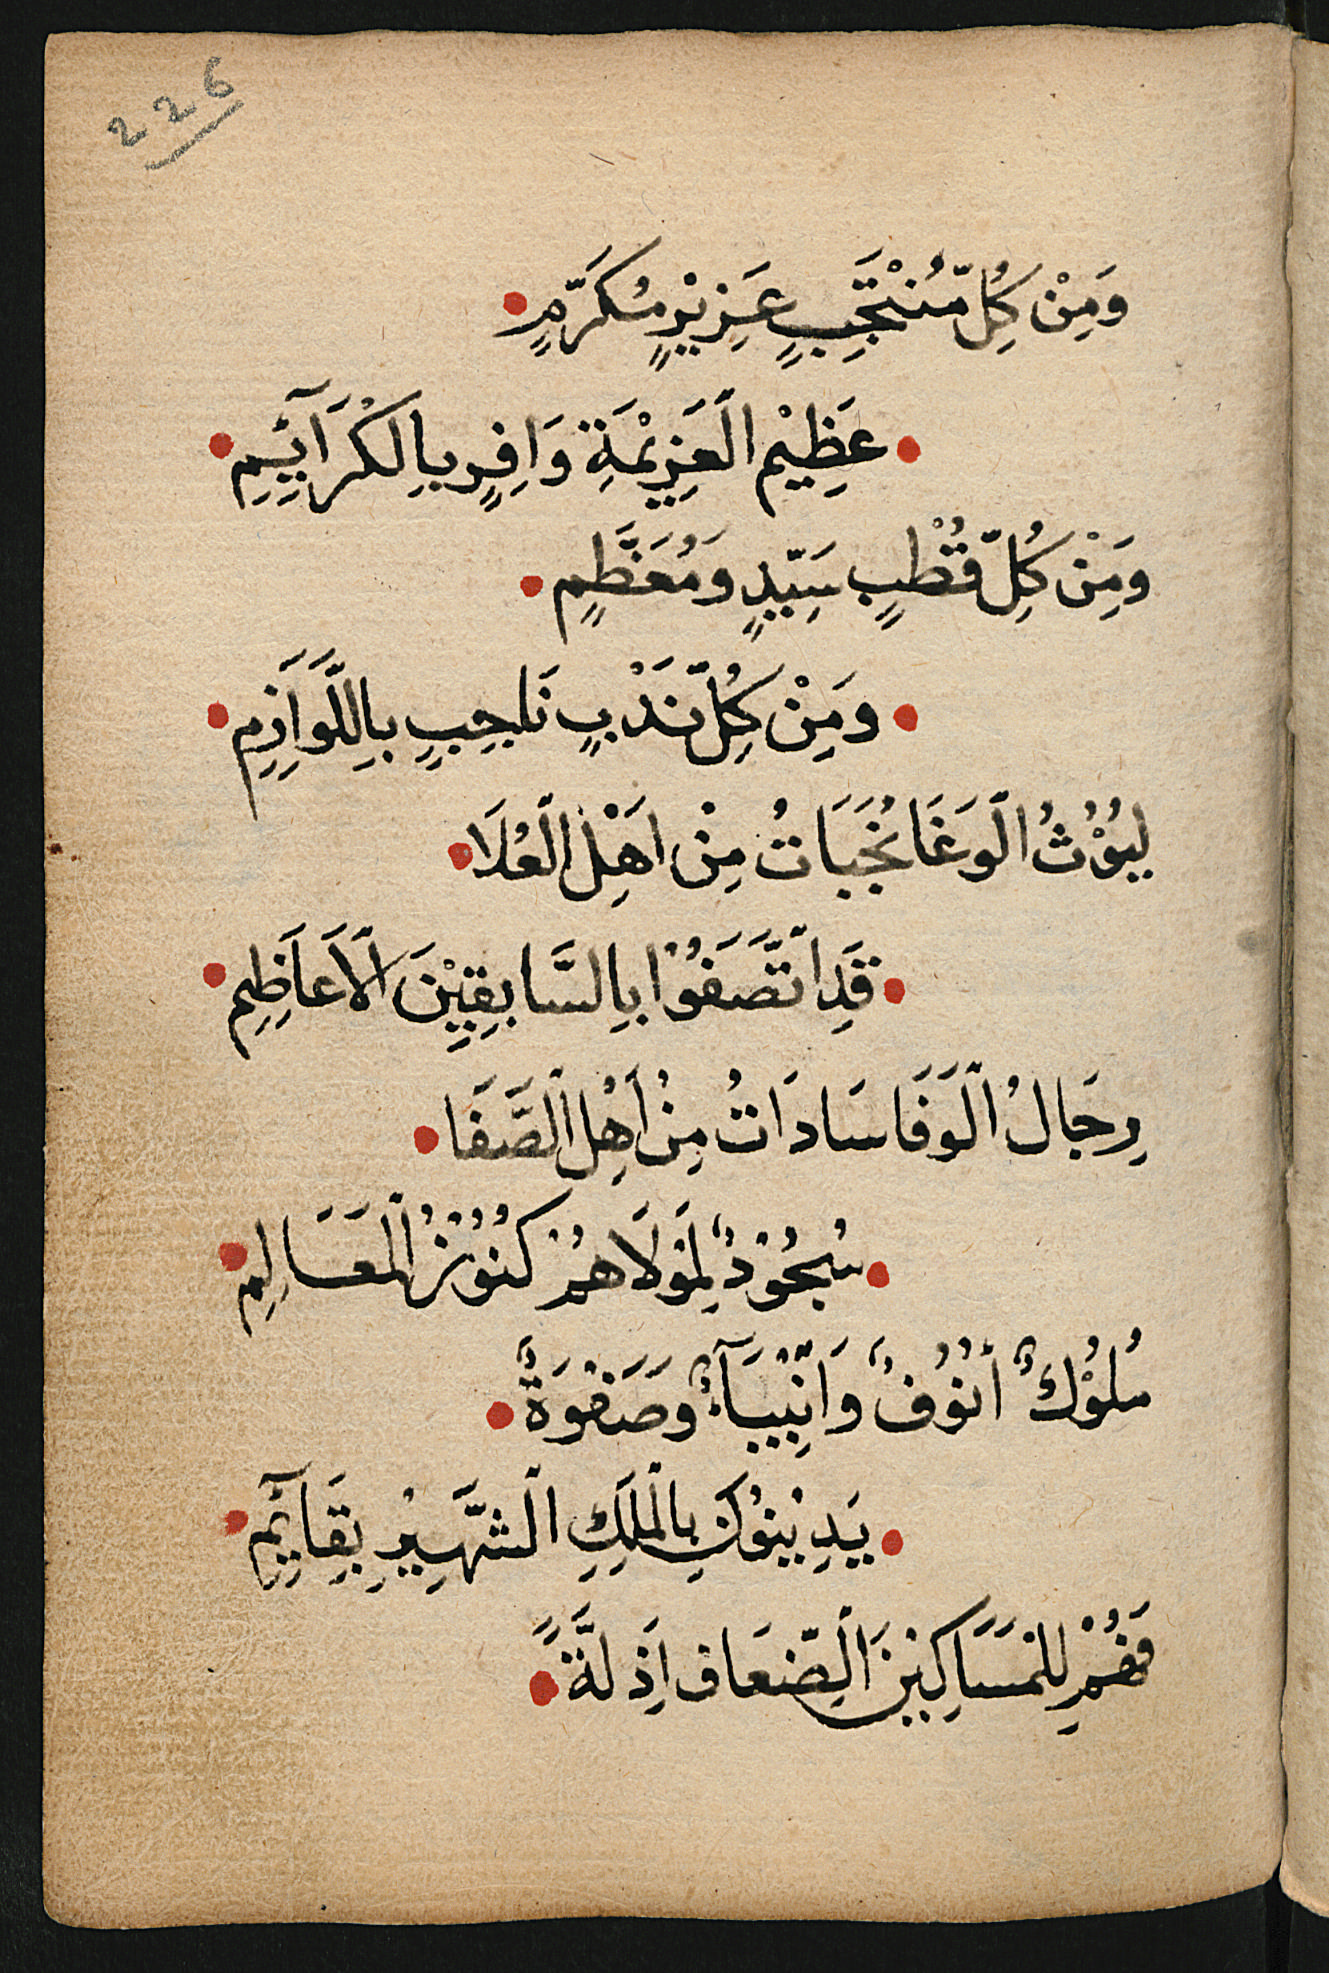 226
وَمِنْ كُلِّ مُنْتَجَبٍ عَزِيْزٍ مُكَرَّمٍ
عَظِيْمِ الْعَزِيْمَةِ وَافِرٍ بِالْكَرَآئِمِ
وَمِنْ كُلِّ قُطْبٍ سَيِّدٍ وَمُعَظَّمٍ
وَمِنْ كُلِّ نَدْبٍ نَاجِبٍ بِاللَّوَازِمِ
لُيُوْثُ الْوَغَا نُجَبَاتُ مِنْ اَهْلِ الْعُلَا
قَدِ اتَّصَفُوْا بِالسَّابِقِيْنَ الْاَعَاظِمِ
رِجَالُ الْوَفَا سَادَاتُ مِنْ اَهْلِ الصَّفَا
سُجُوْدٌ لِمَوْلَاهُمْ كُنُوْزُ الْمَعَالِمِ
مُلُوْكٌ أُنُوْفٌ وَانْبِيَآءٌ وَصَفْوَةٌ
يَدِيْنُوْنَ بِالْمَلِكِ الشَّهِيْرِ بِقَآئِمِ
فَهُمْ لِلْمَسَاكِيْنَ الضِّعَافِ اَذِلَّةً